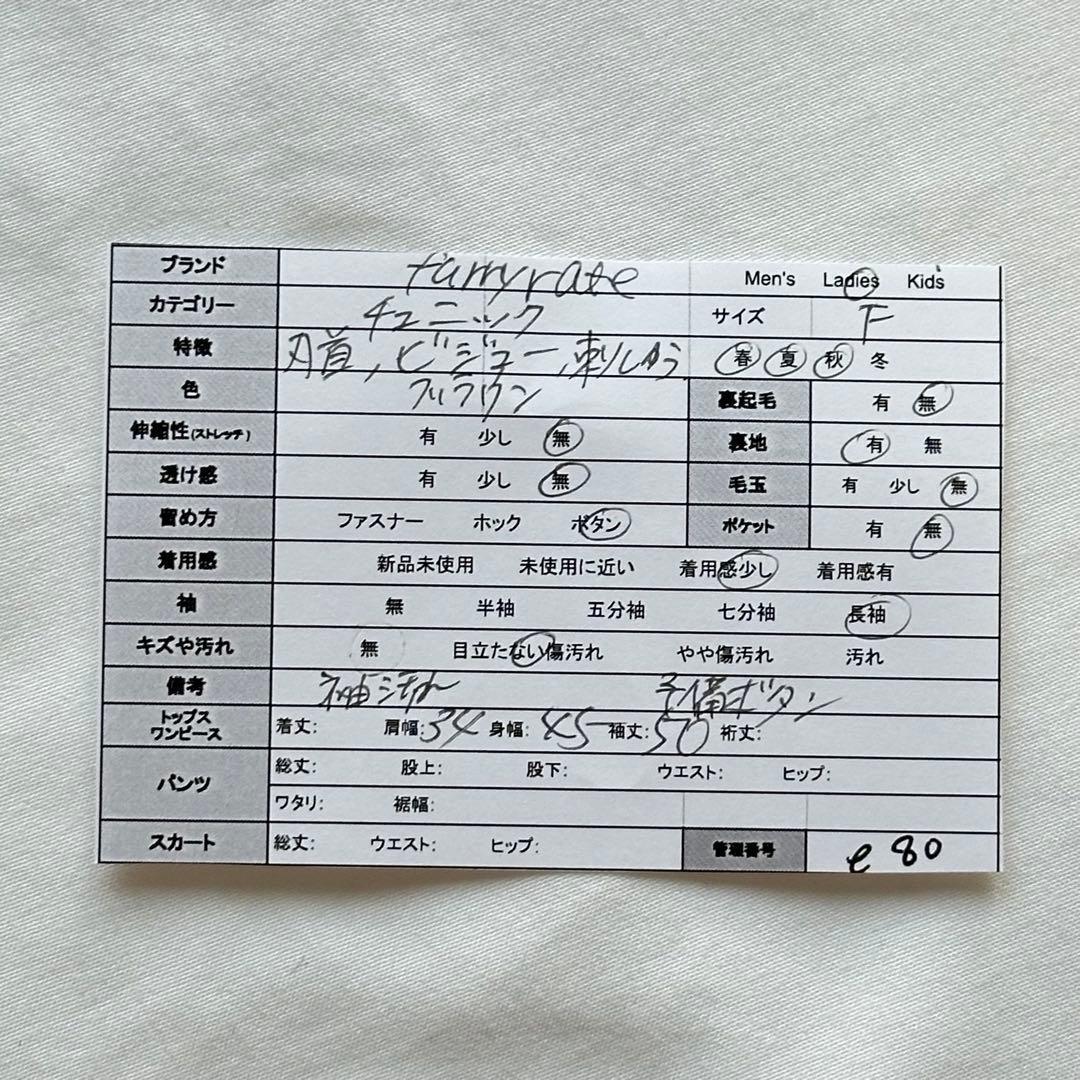 ブランド furryrate Men's Ladies Kids
カテゴリー チュニック サイズ F
特徴 ビジュー、刺しゅう 春 夏 秋 冬
色 ブラウン 裏起毛 有 無
伸縮性(ストレッチ) 有 少し 無 裏地 有 無
透け感 有 少し 無 毛玉 有 少し 無
留め方 ファスナー ホック ボタン ポケット 有 無
着用感 新品未使用 未使用に近い 着用感少し 着用感有
袖 無 半袖 五分袖 七分袖 長袖
キズや汚れ 無 目立たない傷汚れ やや傷汚れ 汚れ
備考 袖汚れ 予備ボタン
トップス ワンピース 着丈: 肩幅:34 身幅:45 袖丈:50 裄丈:
パンツ 総丈: 股上: 股下: ウエスト: ヒップ:
ワタリ: 裾幅:
スカート 総丈: ウエスト: ヒップ: 管理番号 e 80